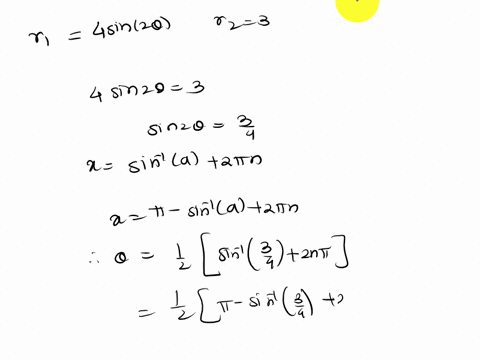 r₁ = 4sin(2θ) r₂=3
4 sin2θ = 3
sin2θ = 3/4
x = sin⁻¹(a) + 2πn
x = π - sin⁻¹(a) + 2πn
∴ θ = 1/2 [sin⁻¹(3/4) + 2nπ]
= 1/2 [π - sin⁻¹(3/4) + 2